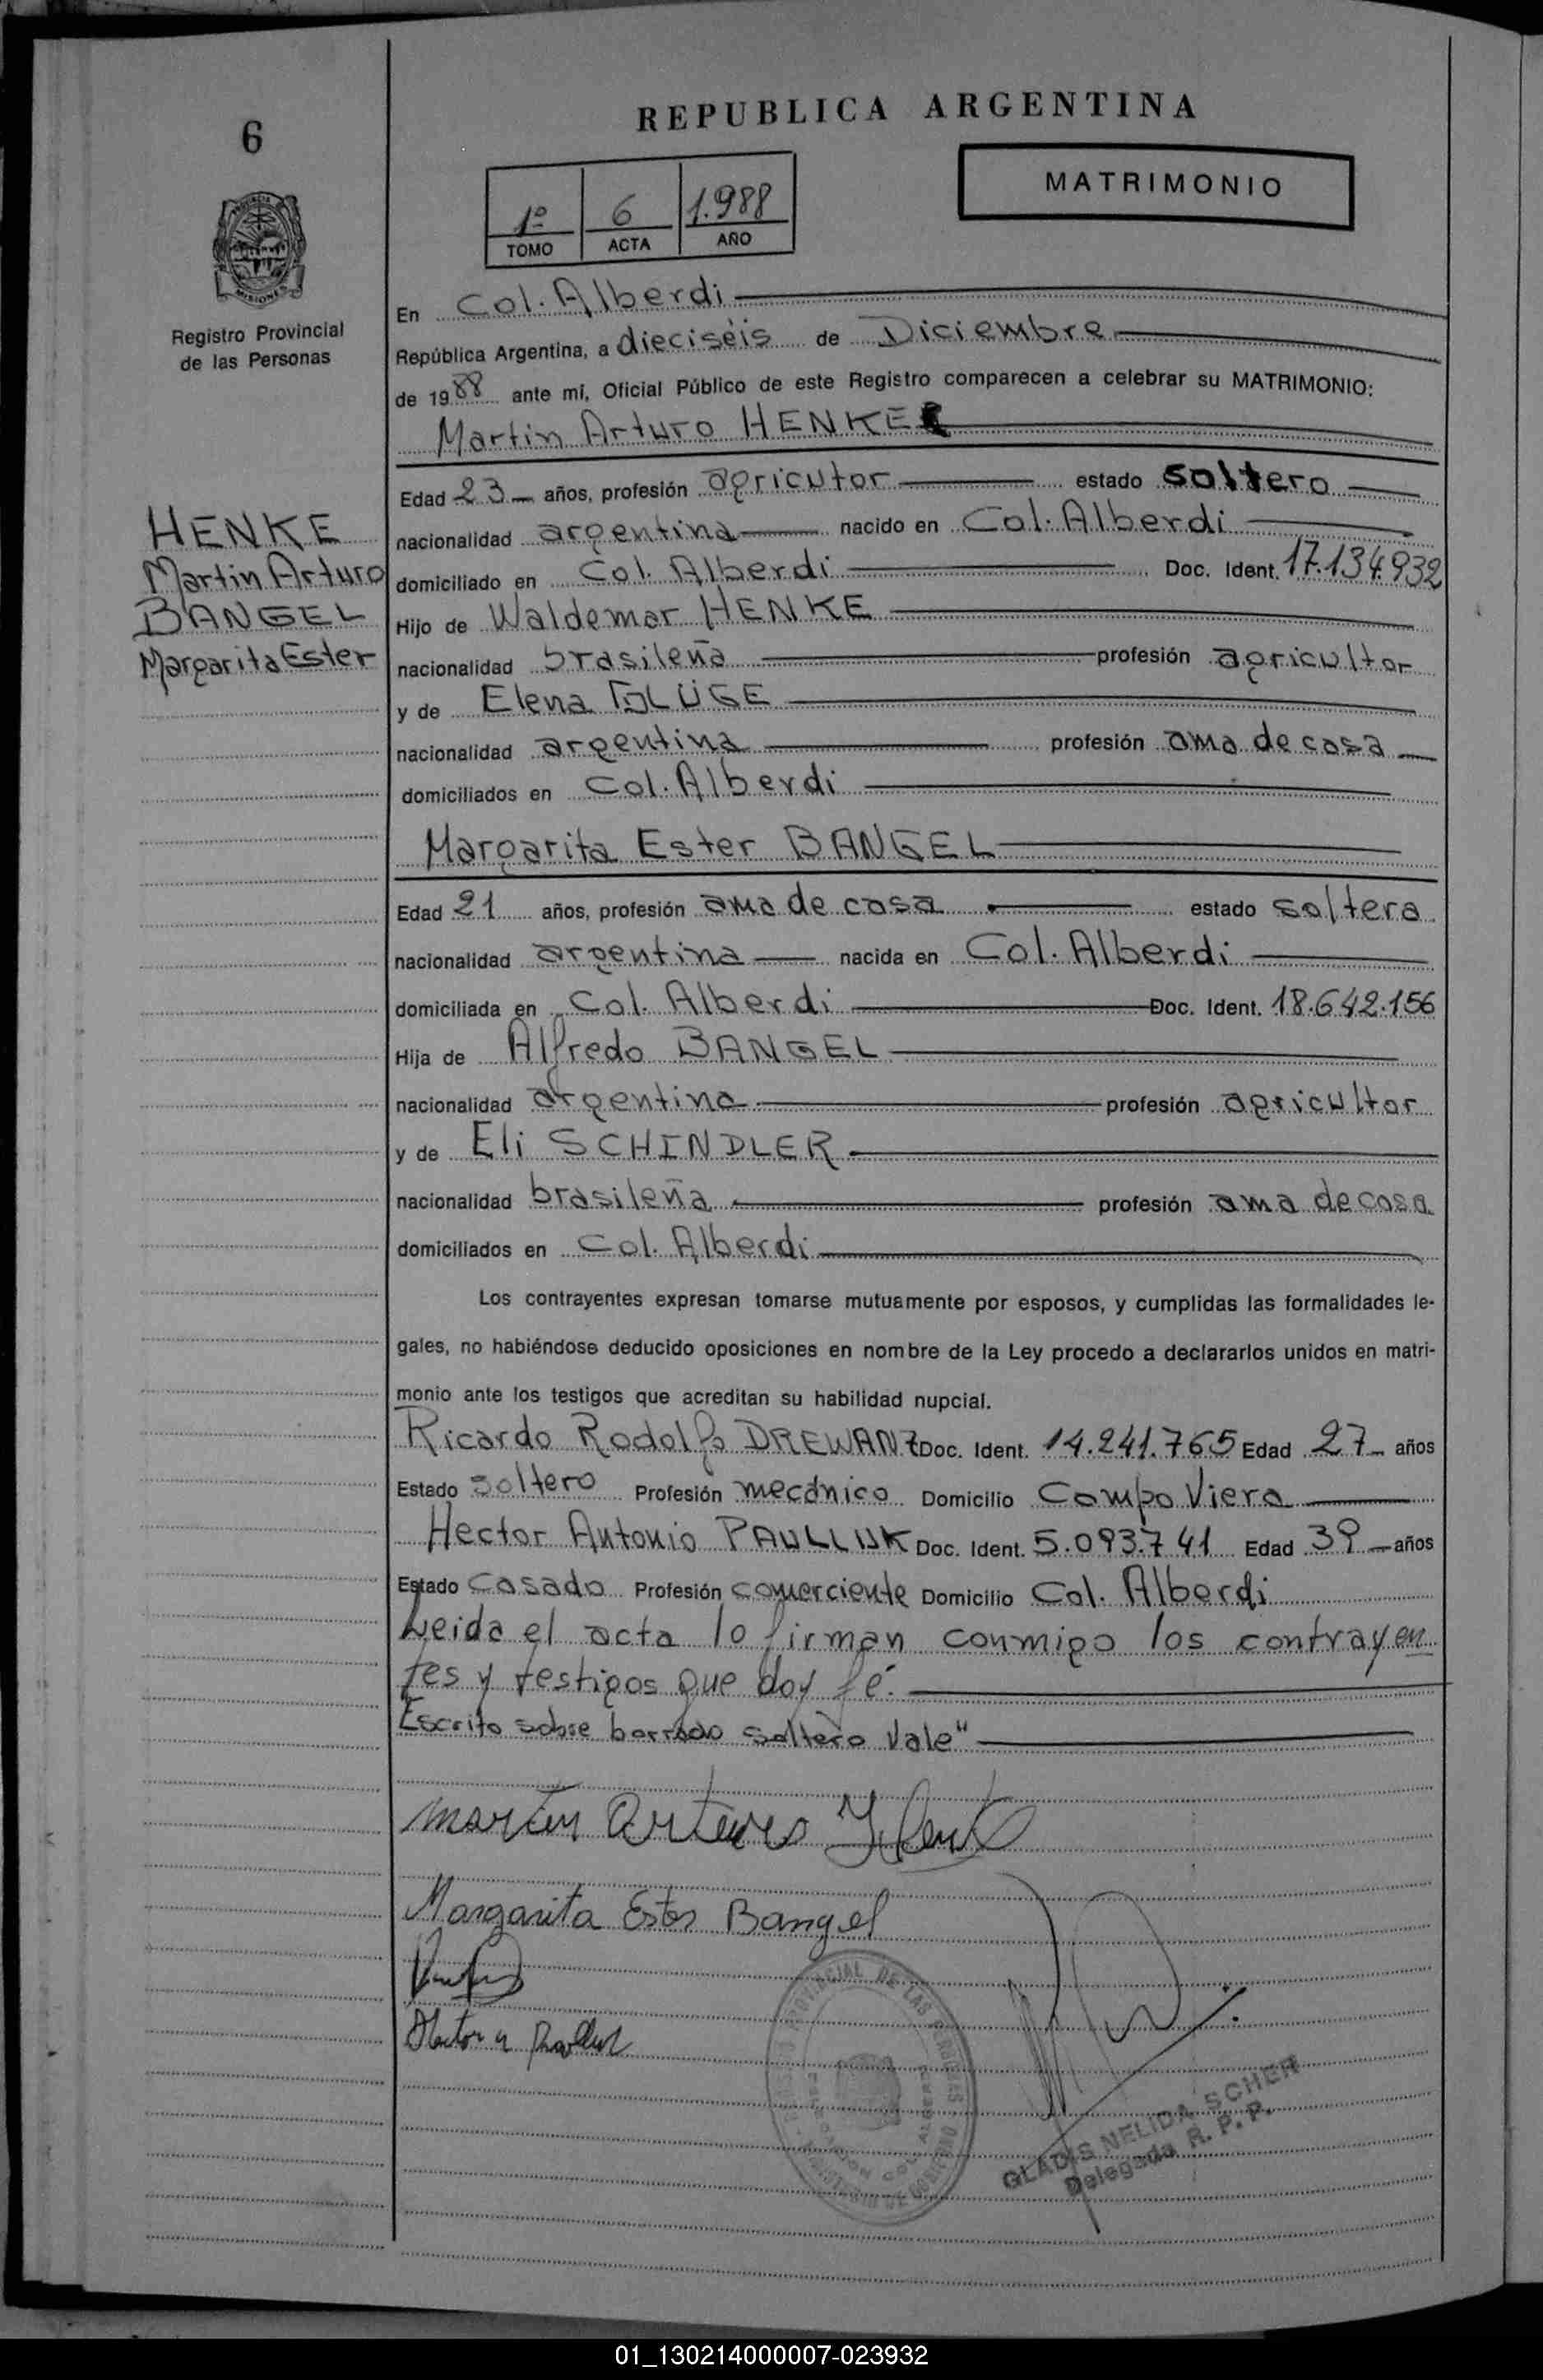 REPUBLICA ARGENTINA
6
MATRIMONIO
1º 6 1.988
TOMO ACTA AÑO
PROVINCIA
MISIONES
Registro Provincial
de las Personas
En Col. Alberdi
República Argentina, a dieciséis de Diciembre
de 1988 ante mí, Oficial Público de este Registro comparecen a celebrar su MATRIMONIO:
Martin Arturo HENKE
Edad 23 años, profesión agricutor estado soltero
nacionalidad argentina nacido en Col. Alberdi
domiciliado en Col. Alberdi Doc. Ident. 17.134.932
Hijo de Waldemar HENKE
nacionalidad brasileña profesión agricultor
y de Elena
nacionalidad argentina profesión ama de casa
domiciliados en Col. Alberdi
HENKE
Martin Arturo
BANGEL
Margarita Ester
Margarita Ester BANGEL
Edad 21 años, profesión ama de casa estado soltera
nacionalidad argentina nacida en Col. Alberdi
domiciliada en Col. Alberdi Doc. Ident. 18.642.156
Hija de Alfredo BANGEL
nacionalidad argentina profesión agricultor
y de Eli SCHINDLER
nacionalidad brasileña profesión ama de casa
domiciliados en Col. Alberdi
Los contrayentes expresan tomarse mutuamente por esposos, y cumplidas las formalidades le-
gales, no habiéndose deducido oposiciones en nombre de la Ley procedo a declararlos unidos en matri-
monio ante los testigos que acreditan su habilidad nupcial.
Ricardo Rodolfo DREWANZ Doc. Ident. 14.241.765 Edad 27 años
Estado soltero Profesión mecánico Domicilio Campo Viera
Hector Antonio PAULLUK Doc. Ident. 5.093.741 Edad 39 años
Estado Casado Profesión comerciente Domicilio Col. Alberdi
Leida el acta lo firman conmigo los contrayen
tes y testigos que doy fé.
Escrito sobre borrado soltero Vale"
Martin Arturo Henke
Margarita Ester Bangel
PROVINCIAL DE LAS PERSONAS
GLADIS NELIDA SCHER
Delegada R. P. P.
01_130214000007-023932